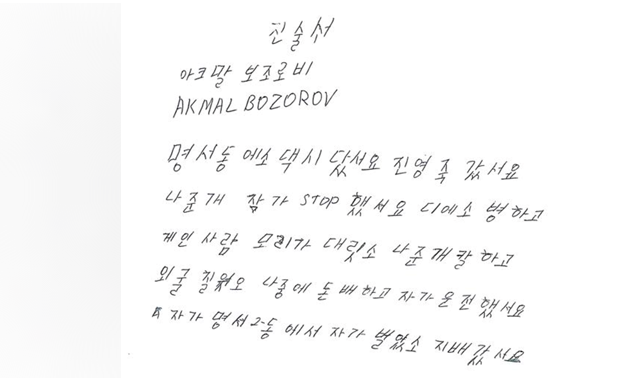 진술서
아크말 보조로비
AKMAL BOZOROV
명서동 에소 댁시 닸서요 진영 족 갔서요
나준개 잠가 STOP 했서요 디에소 병하고
게인 사람 모리가 대릿소 나준개 칼 하고
외굴 질웠오 나중에 돈 배하고 자가 운전했서요
자가 명서2-동 에서 자가 벌었소 지배 갔서요